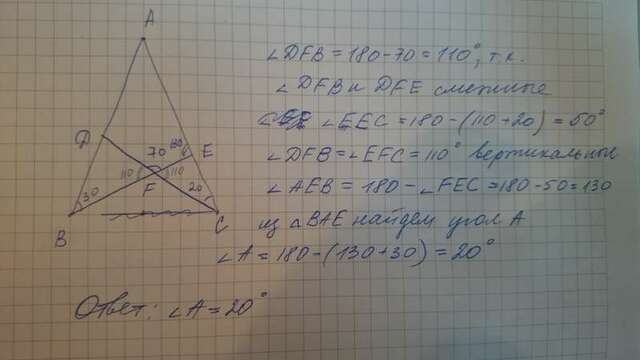 A
D
70
130
E
110
F
110
30
20
B
C
∠DFB = 180-70 = 110°, т.к.
∠DFB и DFE смежные
∠FEC = 180-(110+20) = 50°
∠DFB = ∠EFC = 110° вертикальные
∠AEB = 180 - ∠FEC = 180-50 = 130
из △BAE найдем угол A
∠A = 180-(130+30) = 20°
Ответ: ∠A = 20°